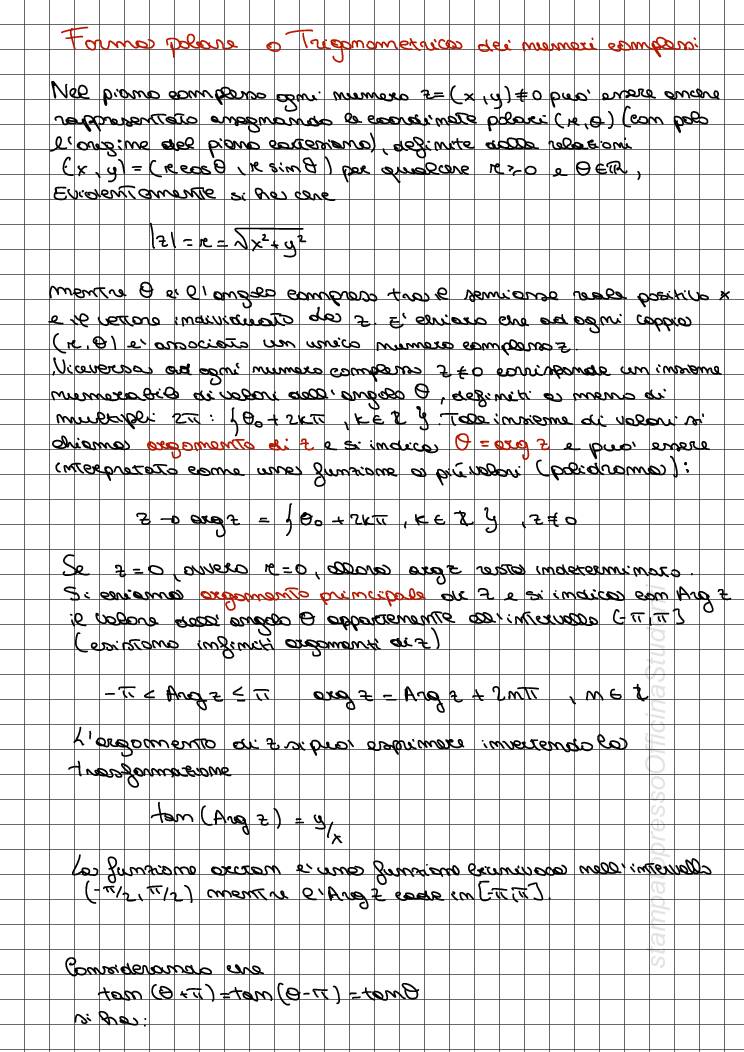 Forma polare o Trigonometrica dei numeri complessi
Nel piano complesso ogni numero z=(x,y)≠0 puo' essere anche
rappresentato assegnando le coordinate polari (r,θ) (con polo
l'origine del piano cartesiano), definite dalle relazioni
(x,y)=(r cosθ, r sinθ) per qualche r>0 e θ∈ℝ,
Evidentemente si ha che
|z|=r=√x²+y²
mentre θ e' l'angolo compreso tra il semiasse reale positivo x
e il vettore individuato da z. E' chiaro che ad ogni coppia
(r,θ) e' associato un unico numero complesso z.
Viceversa ad ogni numero complesso z≠0 corrisponde un insieme
numerabile di valori dell'angolo θ, definiti a meno di
multipli 2π: {θ₀+2kπ, k∈ℤ}. Tale insieme di valori si
chiama argomento di z e si indica θ=arg z e puo' essere
interpretato come una funzione a più valori (polidroma):
z → arg z = {θ₀+2kπ, k∈ℤ}, z≠0
Se z=0, ovvero r=0, allora arg z resta indeterminato.
Si chiama argomento principale di z e si indica con Arg z
il valore dell'angolo θ appartenente all'intervallo (-π,π]
(esistono infiniti argomenti di z)
-π < Arg z ≤ π arg z = Arg z + 2nπ, n∈ℤ
L'argomento di z si puo' esprimere invertendo la
trasformazione
tan(Arg z) = y/x
La funzione arctan e' una funzione biunivoca nell'intervallo
(-π/2, π/2) mentre l'Arg z cade in [-π,π].
Considerando che
tan(θ+π)=tan(θ-π)=tanθ
si ha:
stampatopressoOfficinaStudenti